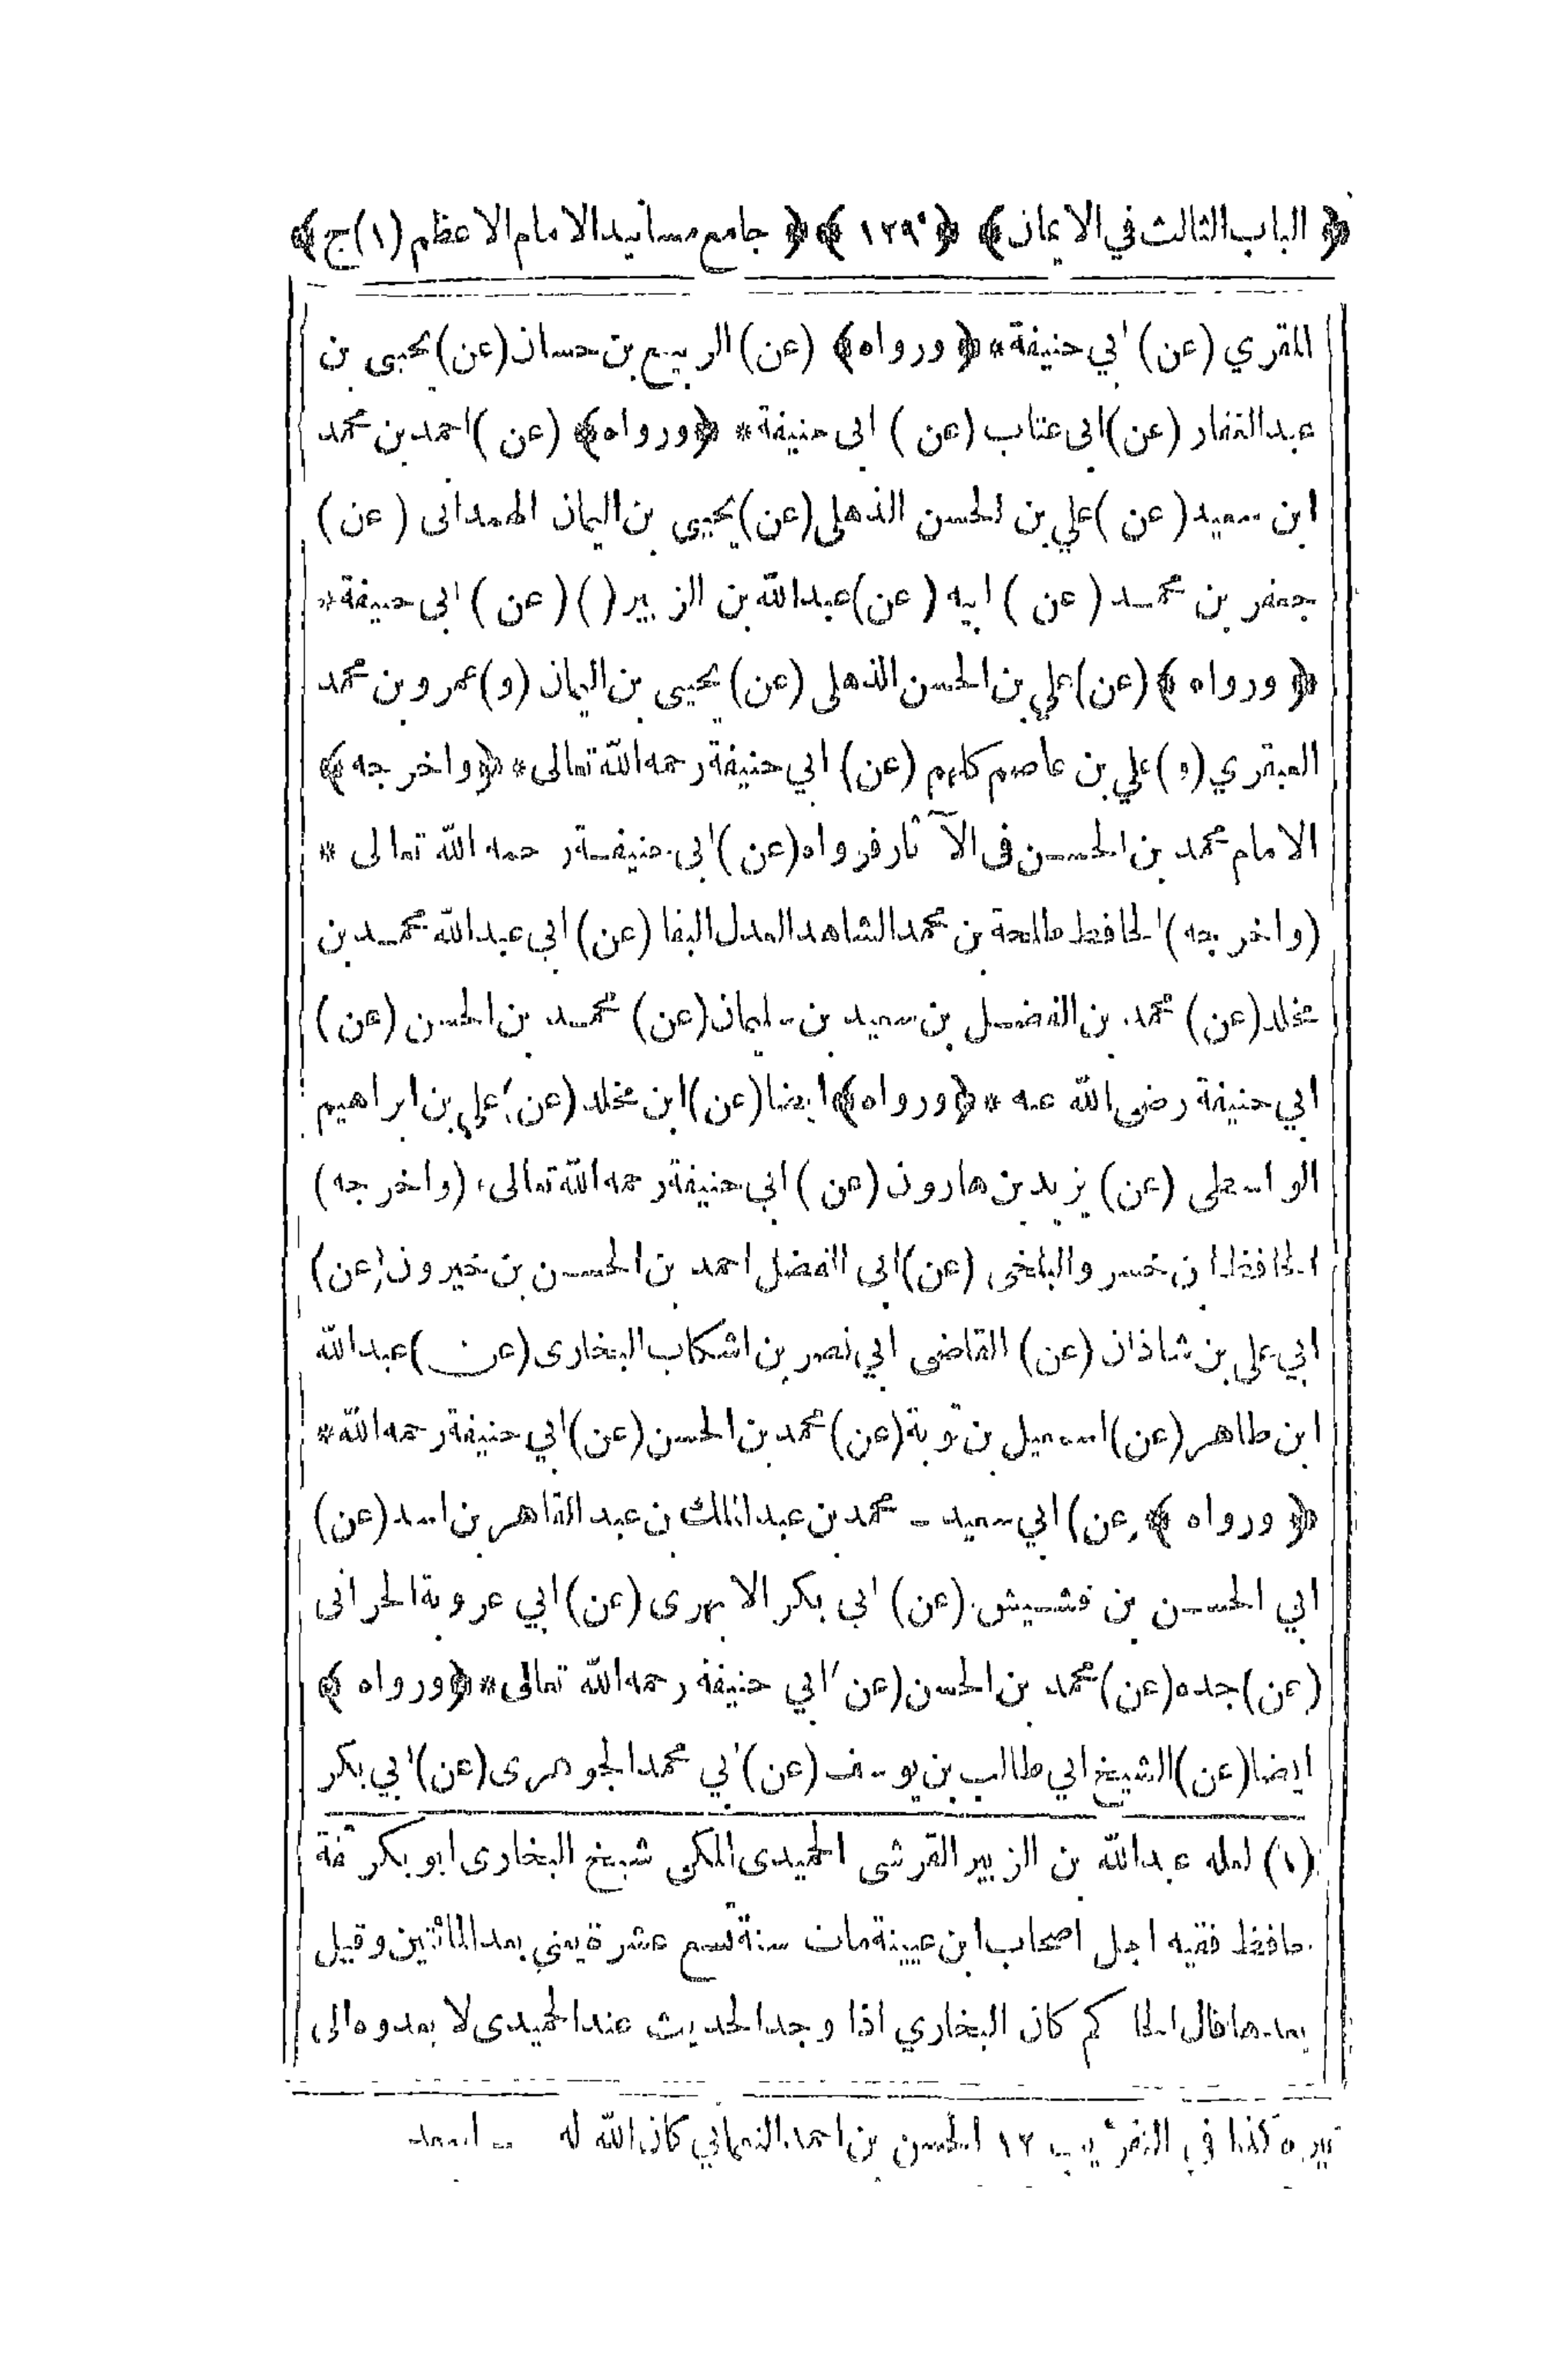 ﴿ الباب الثالث في الايمان ﴾ ﴿ ١٣٩ ﴾ ﴿ جامع مسانيد الامام الاعظم (١) ج ﴾
المقري (عن) ابي حنيفة * ﴿ ورواه ﴾ (عن) الربيع بن حسان (عن) يحيى بن
عبد الغفار (عن) ابى عتاب (عن) ابى حنيفة * ﴿ ورواه ﴾ (عن) احمد بن محمد
ابن سعيد (عن) علي بن الحسن الذهلى (عن) يحيى بن اليمان الهمدانى (عن)
جعفر بن محمد (عن) ابيه (عن) عبد الله بن الزبير () (عن) ابى حنيفة *
﴿ ورواه ﴾ (عن) علي بن الحسن الذهلى (عن) يحيى بن اليمان (و) عمرو بن محمد
العبقري (و) علي بن عاصم كلهم (عن) ابي حنيفة رحمه الله تعالى * ﴿ واخرجه ﴾
الامام محمد بن الحسن فى الآثار فرواه (عن) ابى حنيفة رحمه الله تعالى *
(واخرجه) الحافظ طلحة بن محمد الشاهد العدل البفا (عن) ابي عبد الله محمد بن
مخلد (عن) محمد بن الفضل بن سعيد بن سليمان (عن) محمد بن الحسن (عن)
ابي حنيفة رضى الله عنه * ﴿ ورواه ﴾ ايضا (عن) ابن مخلد (عن) علي بن ابراهيم
الواسطى (عن) يزيد بن هارون (عن) ابي حنيفة رحمه الله تعالى، (واخرجه)
الحافظ ابن خسرو البلخى (عن) ابى الفضل احمد بن الحسن بن خيرون (عن)
ابي على بن شاذان (عن) القاضى ابي نصر بن اشكاب البخارى (عن) عبد الله
ابن طاهر (عن) اسمعيل بن توبة (عن) محمد بن الحسن (عن) ابي حنيفة رحمه الله *
﴿ ورواه ﴾ (عن) ابي سعيد محمد بن عبد الملك بن عبد القاهر بن اسد (عن)
ابي الحسن بن قشيش (عن) ابى بكر الابهرى (عن) ابي عروبة الحرانى
(عن) جده (عن) محمد بن الحسن (عن) ابي حنيفة رحمه الله تعالى * ﴿ ورواه ﴾
ايضا (عن) الشيخ ابي طالب بن يوسف (عن) ابي محمد الجوهرى (عن) ابي بكر
(١) لعله عبد الله بن الزبير القرشى الحميدى المكى شيخ البخارى ابو بكر ثقة
حافظ فقيه اجل اصحاب ابن عيينة مات سنة تسع عشرة يعني بعد المائتين وقيل
بعدها قال الحاكم كان البخاري اذا وجد الحديث عند الحميدى لا يعدوه الى
غيره كذا في التقريب ١٢ الحسن بن احمد النعماني كان الله له